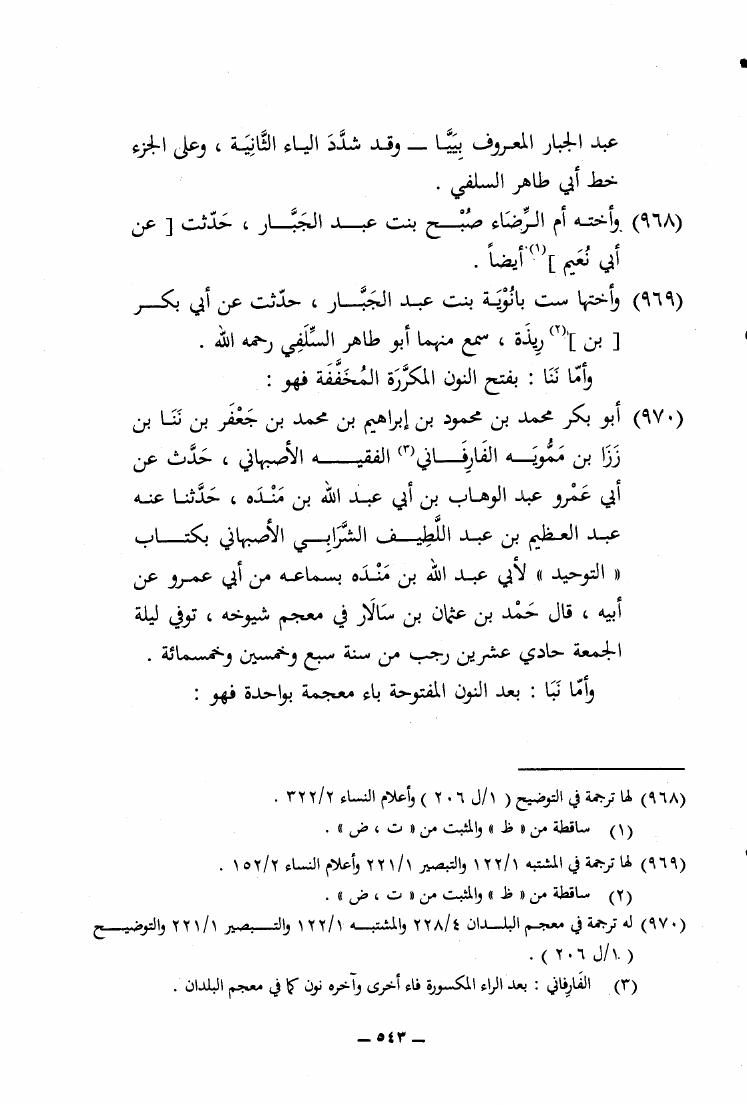 عبد الجبار المعروف بِبَيَّا — وقد شدَّدَ الياء الثَّانِيَة ، وعلى الجزء
خط أبي طاهر السلفي .
(٩٦٨) وأخته أم الرِّضَاء صُبْح بنت عبد الجَبَّار ، حَدّثت [ عن
أبي نُعَيم ](١) أيضاً .
(٩٦٩) وأختها ست بانُوْيَة بنت عبد الجَبَّار ، حدّثت عن أبي بكر
[ بن ](٢) رِيذَة ، سمع منهما أبو طاهر السِّلَفِي رحمه الله .
وأمّا نَنَا : بفتح النون المكرَّرَة المُخَفَّفَة فهو :
(٩٧٠) أبو بكر محمد بن محمود بن إبراهيم بن محمد بن جَعْفَر بن نَنَا بن
زَزَا بن مَمُّويَه الفَارِفَاني(٣) الفقيه الأصبهاني ، حَدَّث عن
أبي عَمْرو عبد الوهاب بن أبي عبد الله بن مَنْدَه ، حَدَّثنا عنه
عبد العظيم بن عبد اللَّطِيف الشَّرَابِي الأصبهاني بكتاب
« التوحيد » لأبي عبد الله بن مَنْدَه بسماعه من أبي عمرو عن
أبيه ، قال حَمْد بن عثمان بن سَالَار في معجم شيوخه ، توفي ليلة
الجمعة حادي عشرين رجب من سنة سبع وخمسين وخمسمائة .
وأمّا نَبَا : بعد النون المفتوحة باء معجمة بواحدة فهو :
(٩٦٨) لها ترجمة في التوضيح ( ١/ل ٢٠٦ ) وأعلام النساء ٣٢٢/٢ .
(١) ساقطة من « ظ » والمثبت من « ت ، ض » .
(٩٦٩) لها ترجمة في المشتبه ١٢٢/١ والتبصير ٢٢١/١ وأعلام النساء ١٥٢/٢ .
(٢) ساقطة من « ظ » والمثبت من « ت ، ض » .
(٩٧٠) له ترجمة في معجم البلدان ٢٢٨/٤ والمشتبه ١٢٢/١ والتبصير ٢٢١/١ والتوضيح
( ١/ل ٢٠٦ ) .
(٣) الفَارِفاني : بعد الراء المكسورة فاء أخرى وآخره نون كما في معجم البلدان .
— ٥٤٣ —